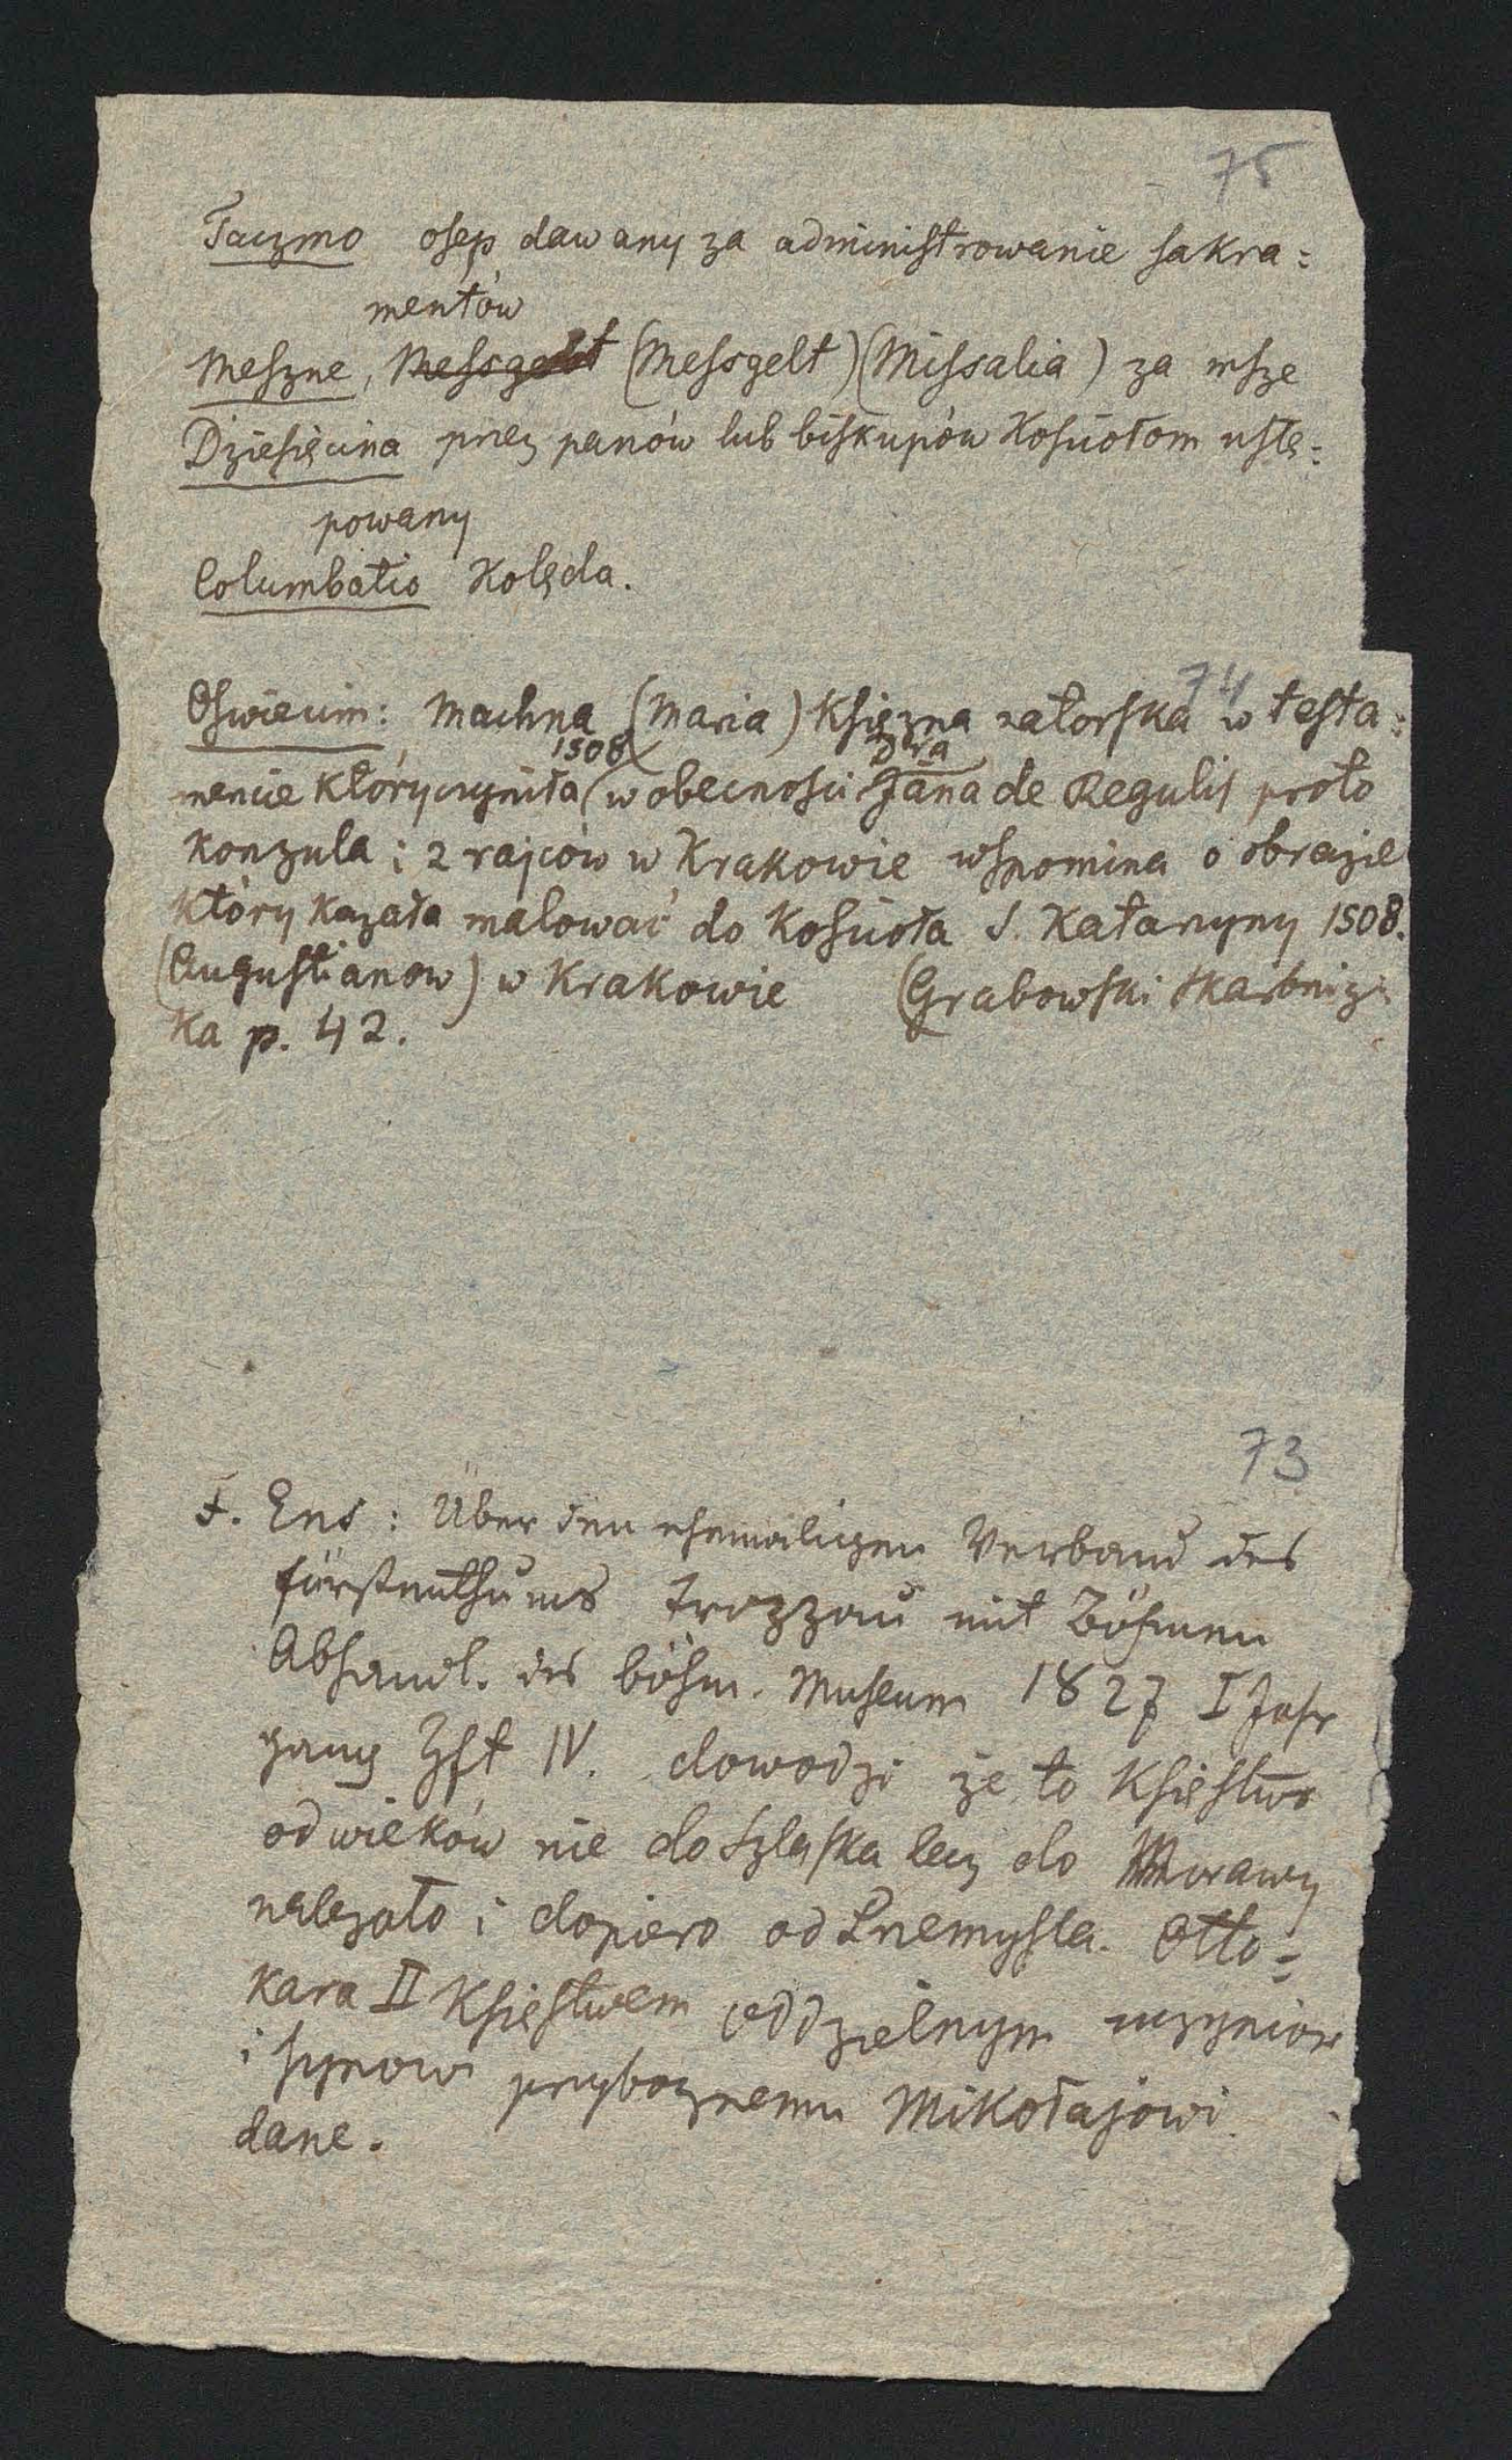 75
Taczmo osep dawany za administrowanie sakra=
mentów
Meszne, Messgelt (Messgelt) (Missalia) za msze
Dziesięcina przez panów lub biskupów Kościołom ustę=
powany
Columbatio Kolęda.
74
Oswiecim: Machna (Maria) Księzna zatorska w testa=
1508 Dra
mencie który czyniła (w obecności Jana de Regulis proto
konzula i 2 rajców w Krakowie wspomina o obrazie
który kazała malować do Kościoła S. Katarzyny 1508.
(Augustianow) w Krakowie (Grabowski Skarbnicz
ka p. 42.
73
F. Ens: Über den ehemaligen Verband des
Fürstenthums Troppau mit Böhmen
Abhandl. des böhm. Museum 1827 I Jahr
gang Hft IV. dowodzi że to Księstwo
od wieków nie do Szląska lecz do Morawy
należało i dopiero od Przemysla. Otto=
kara II Księstwem oddzielnym uczynione
i synowi przybocznemu Mikołajowi
dane.